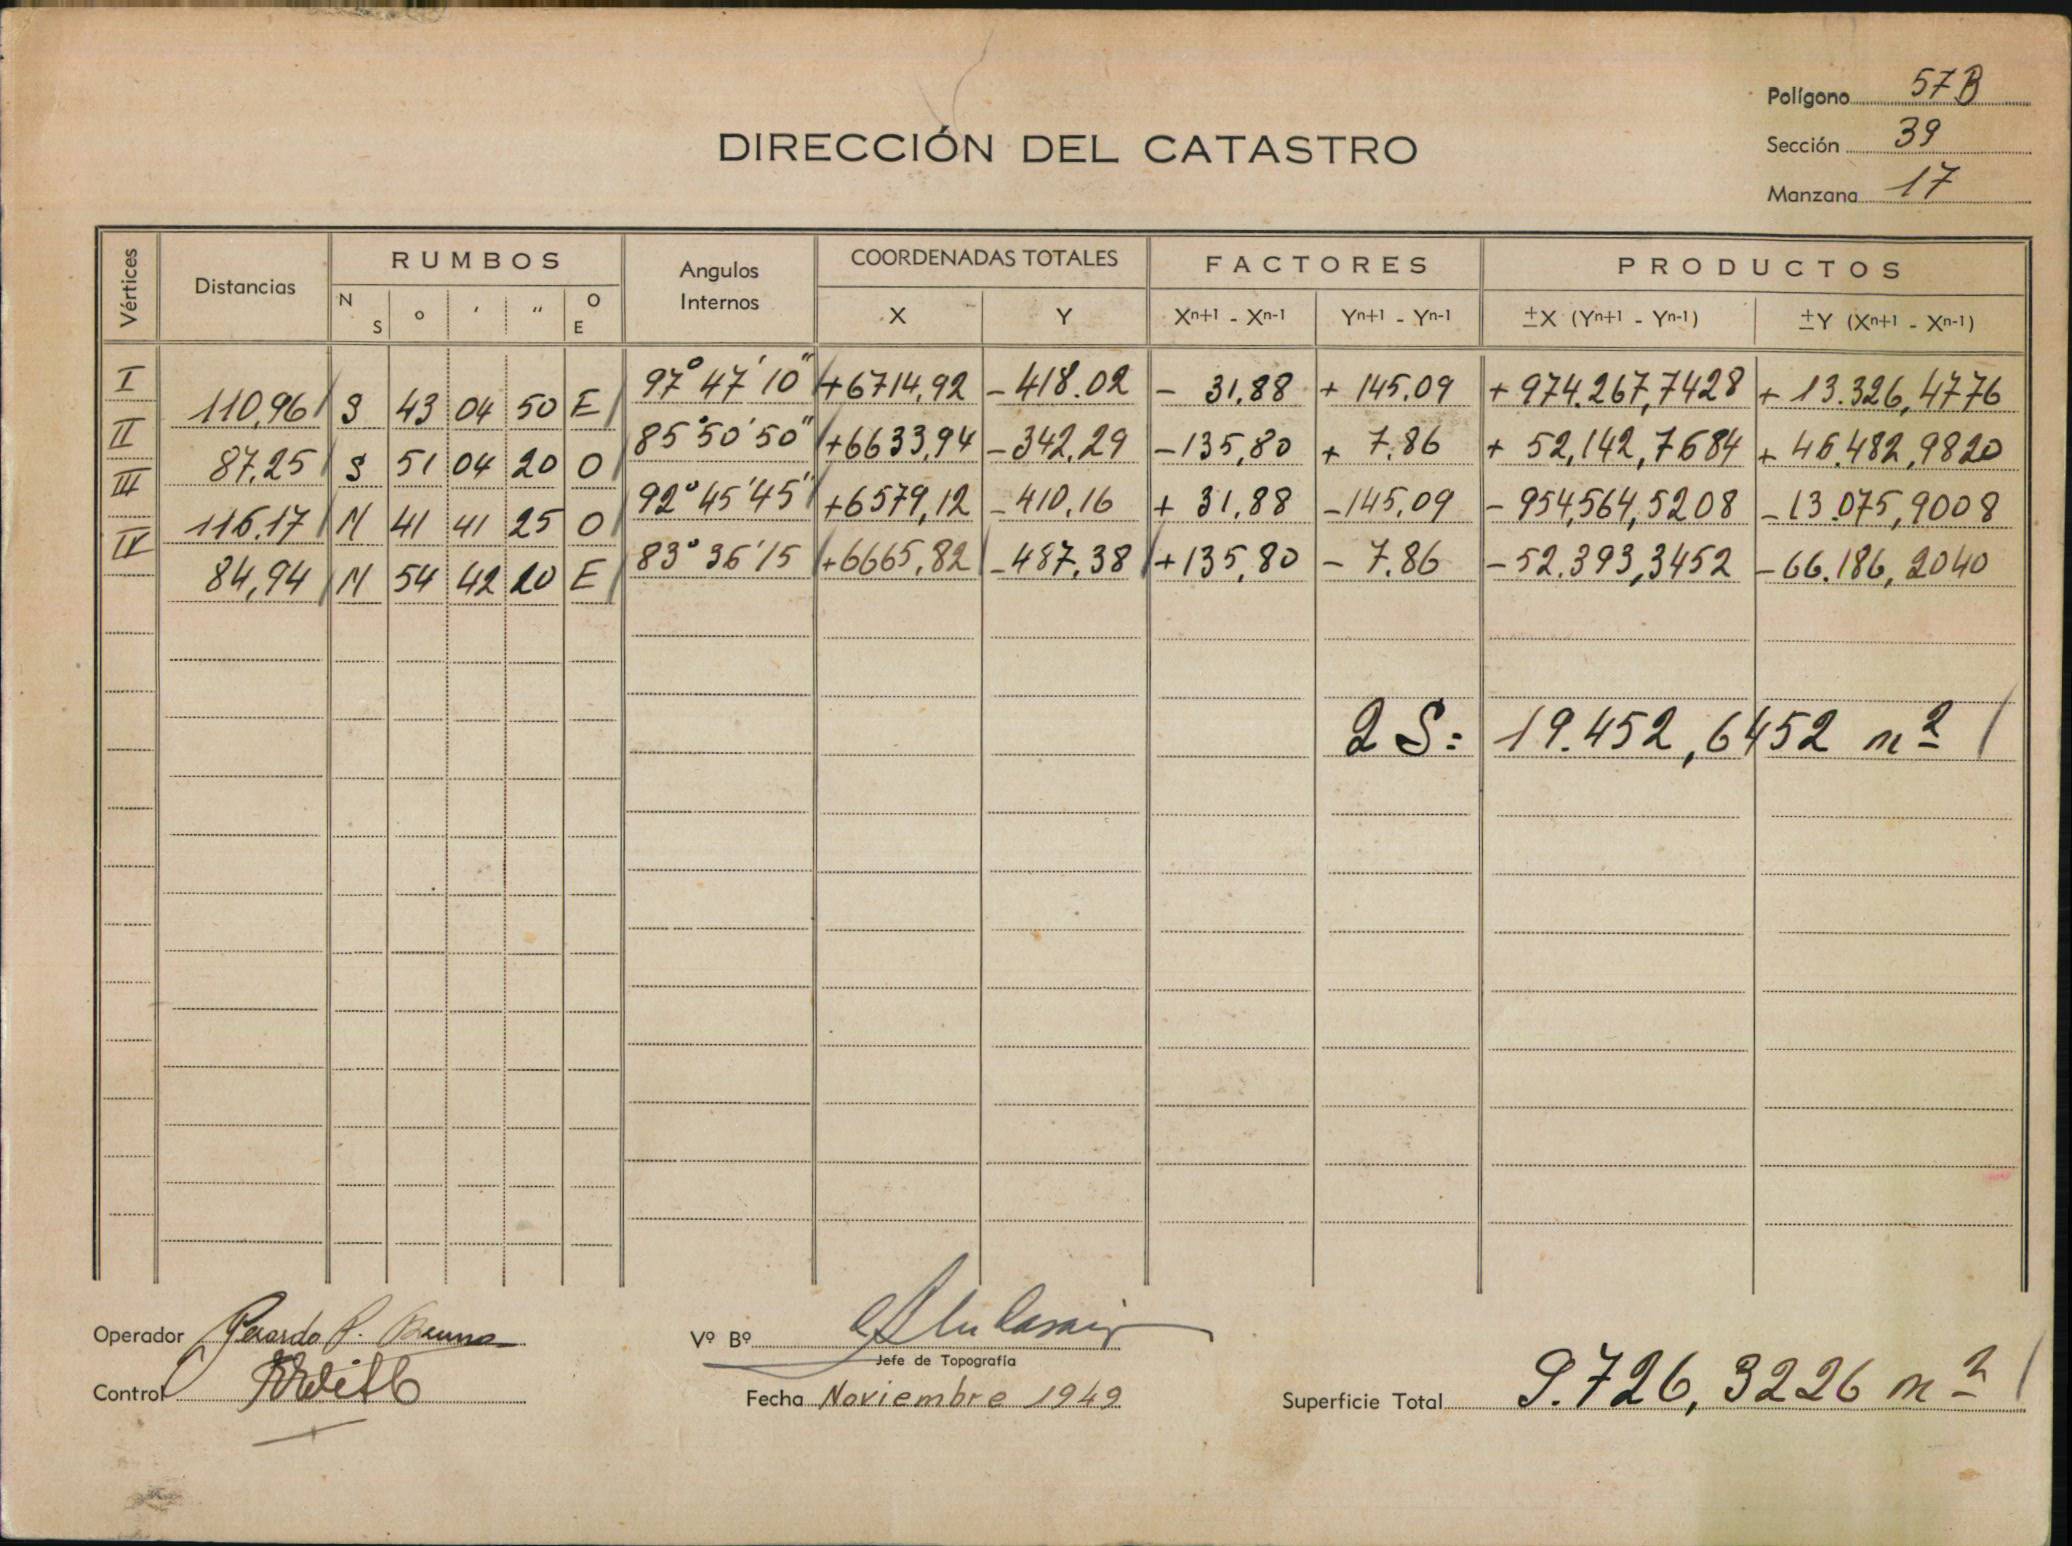 Polígono 57B
DIRECCIÓN DEL CATASTRO
Sección 39
Manzana 17
Vértices Distancias RUMBOS Angulos Internos COORDENADAS TOTALES FACTORES PRODUCTOS
N S ° ' " O E X Y Xn+1 - Xn-1 Yn+1 - Yn-1 ±X (Yn+1 - Yn-1) ±Y (Xn+1 - Xn-1)
I 97° 47' 10" +6714,92 -418.02 - 31,88 + 145,09 + 974.267,7428 + 13.326,4776
110,96 S 43 04 50 E
II 85°50'50" +6633,94 -342,29 -135,80 + 7.86 + 52,142,7684 + 46.482,9820
87,25 S 51 04 20 O
III 92°45'45" +6579,12 -410,16 + 31,88 -145,09 - 954,564,5208 -13.075,9008
116,17 N 41 41 25 O
IV 83°36'15 +6665,82 -487,38 +135,80 - 7.86 -52.393,3452 -66.186,2040
84,94 N 54 42 20 E
2 S= 19.452,6452 m2
Operador Gerardo P.
Vº Bº
Jefe de Topografía
Control
Fecha Noviembre 1949
Superficie Total 9.726,3226 m2